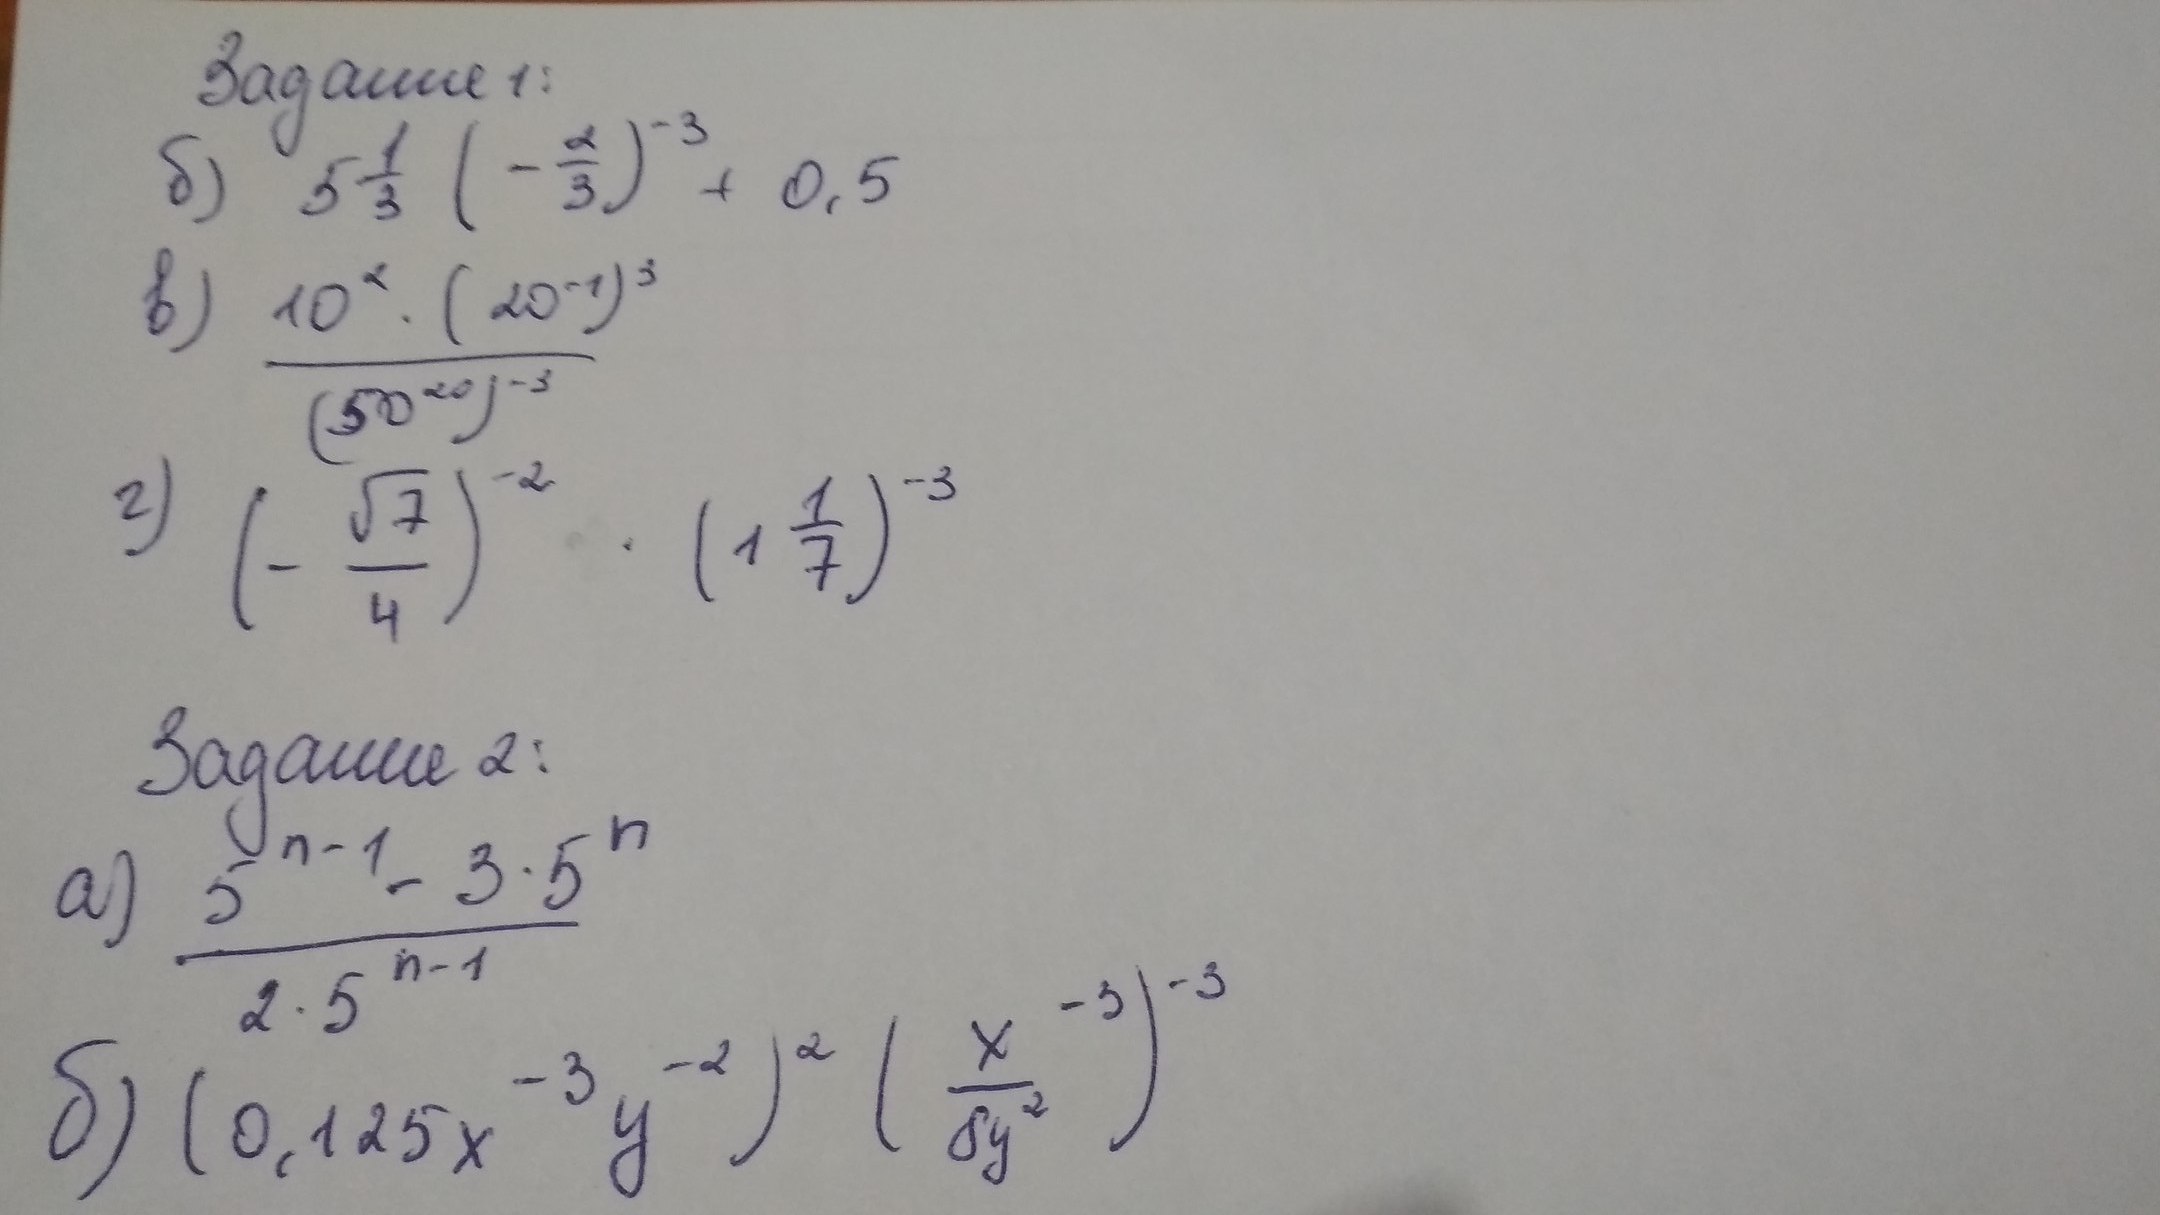 Задание 1:
б) 5 1/3 (- 2/3)^-3 + 0,5
в) 10^2 · (20^-1)^3 / (50^20)^-3
г) (- √7/4)^-2 · (1 1/7)^-3
Задание 2:
а) 5^n-1 - 3·5^n / 2·5^n-1
б) (0,125x^-3 y^-2)^2 (x^-3 / 8y^2)^-3